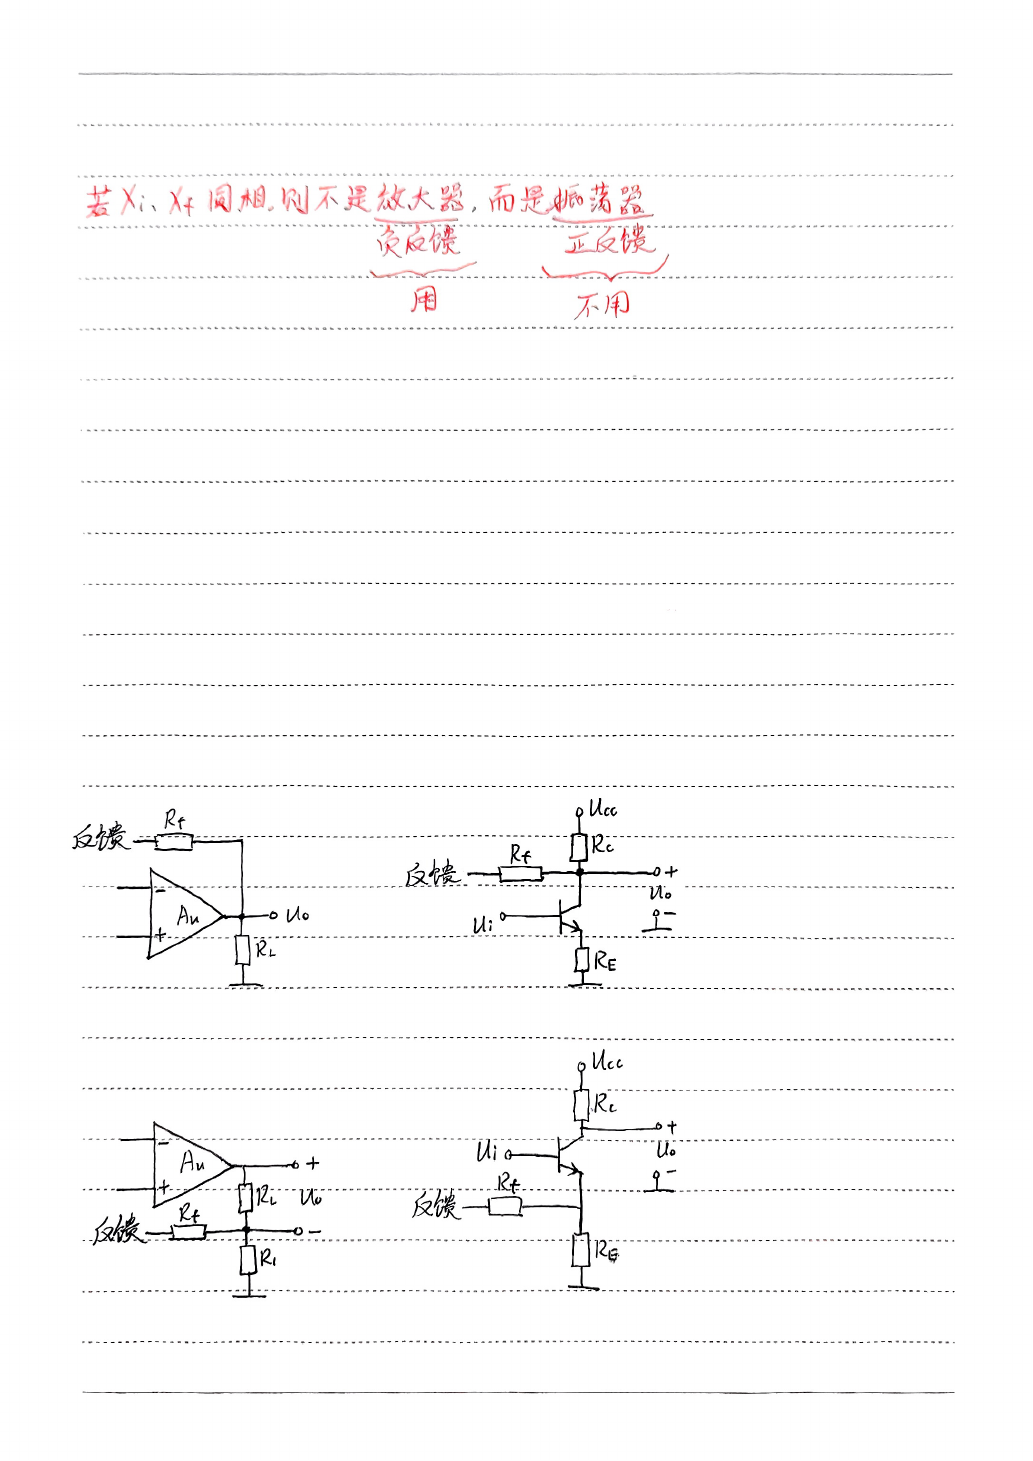 若Xi、Xf同相,则不是放大器,而是振荡器
负反馈 正反馈
用 不用
反馈 Rf
- Au + Uo
RL
Ucc
Rc
反馈 Rf +
Uo
Ui -
RE
- Au + +
RL Uo
反馈 Rf -
R1
Ucc
Rc
+
Ui Uo
-
反馈 Rf
RE